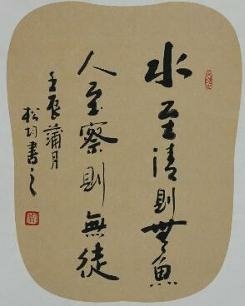 水至清則無魚
人至察則無徒
壬辰蒲月
松均書之